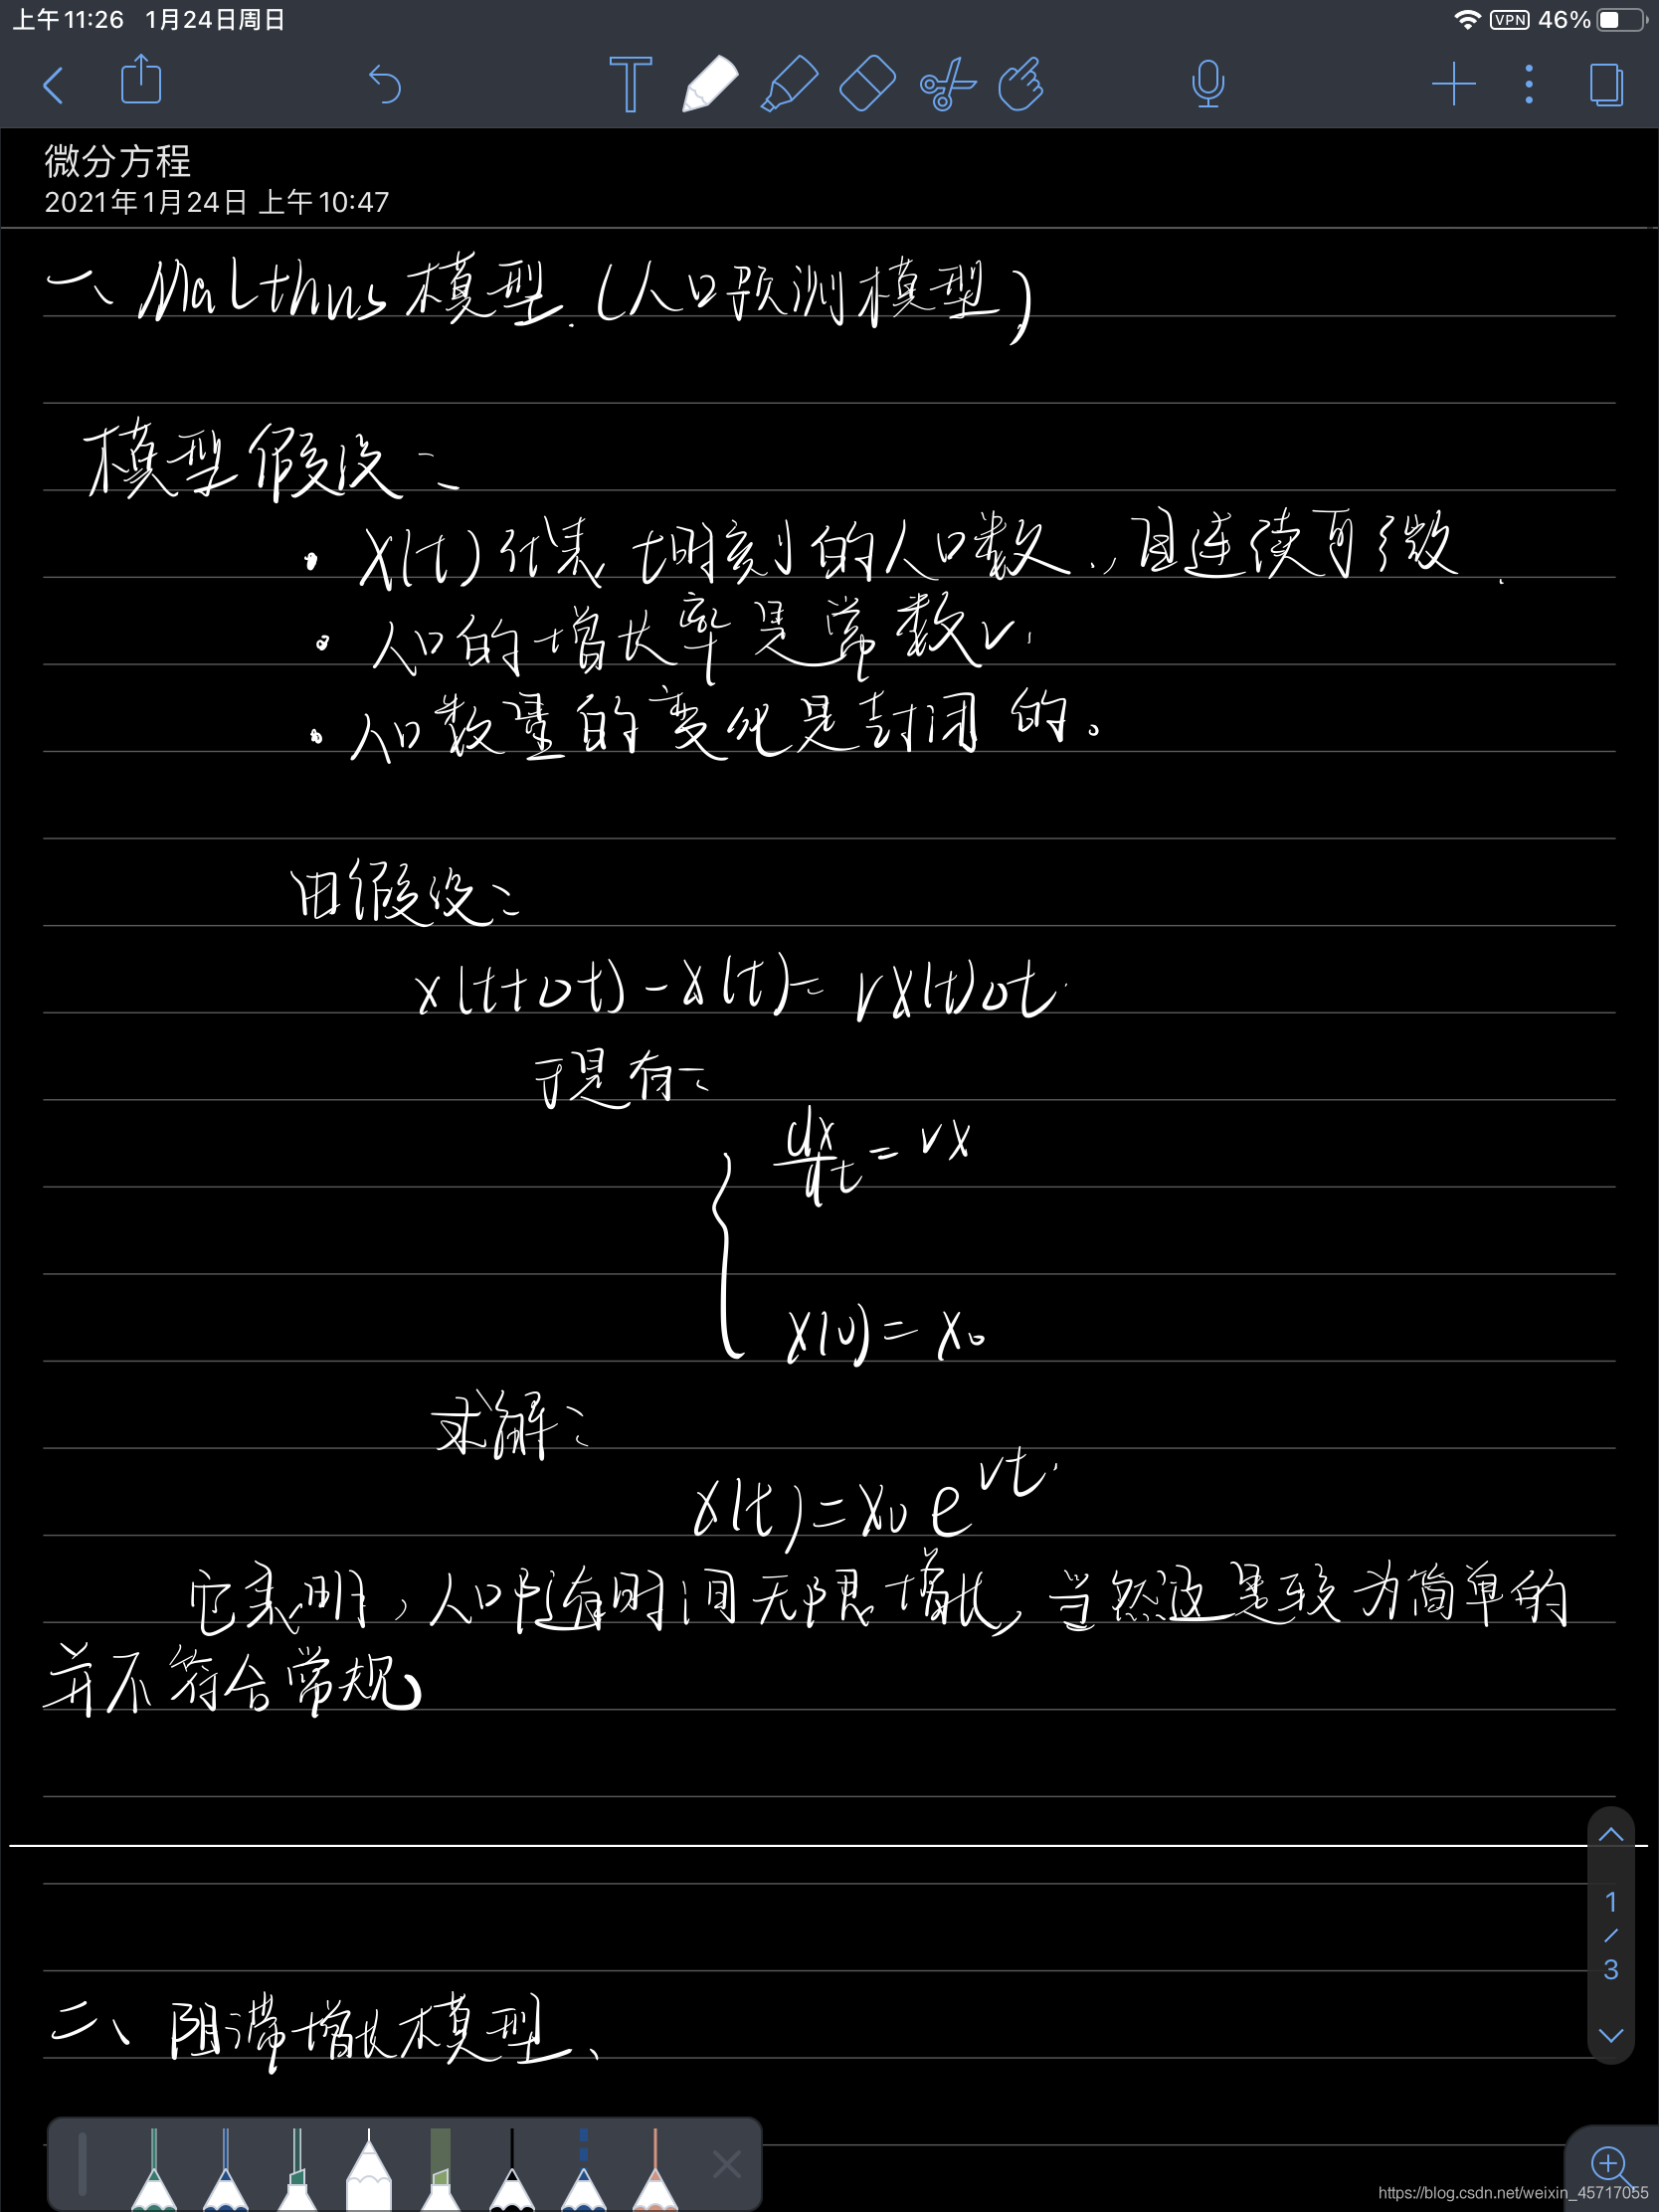 上午11:26 1月24日周日 VPN 46%
T
微分方程
2021年1月24日 上午10:47
一、Malthus模型.(人口预测模型)
模型假设:
· X(t)代表t时刻的人口数.,且连续可微.
· 人口的增长率是常数r.
· 人口数量的变化是封闭的。
由假设:
x(t+Δt)-x(t)=rx(t)Δt.
于是有:
{ dx/dt = rx
x(0)=x₀
求解:
x(t)=x₀e^{rt}.
它表明,人口随时间无限增长,当然这是较为简单的
并不符合常规。
1
/
3
二、阻滞增长模型、
https://blog.csdn.net/weixin_45717055